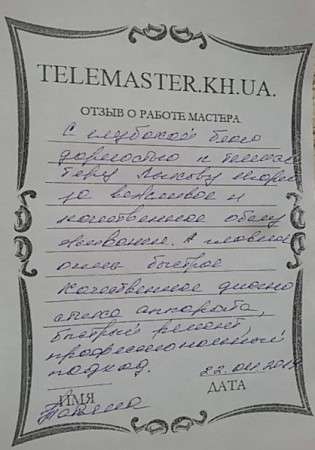 TELEMASTER.KH.UA.
ОТЗЫВ О РАБОТЕ МАСТЕРА.
С глубокой благо
дарностью к телемас
теру Лыкову Игорю
за вежливое и
качественное обслу
живание. А главное
очень быстрое
качественное диагно
стика аппарата,
быстрый ремонт,
профессиональный
подход.
22.
ИМЯ ДАТА
Татьяна